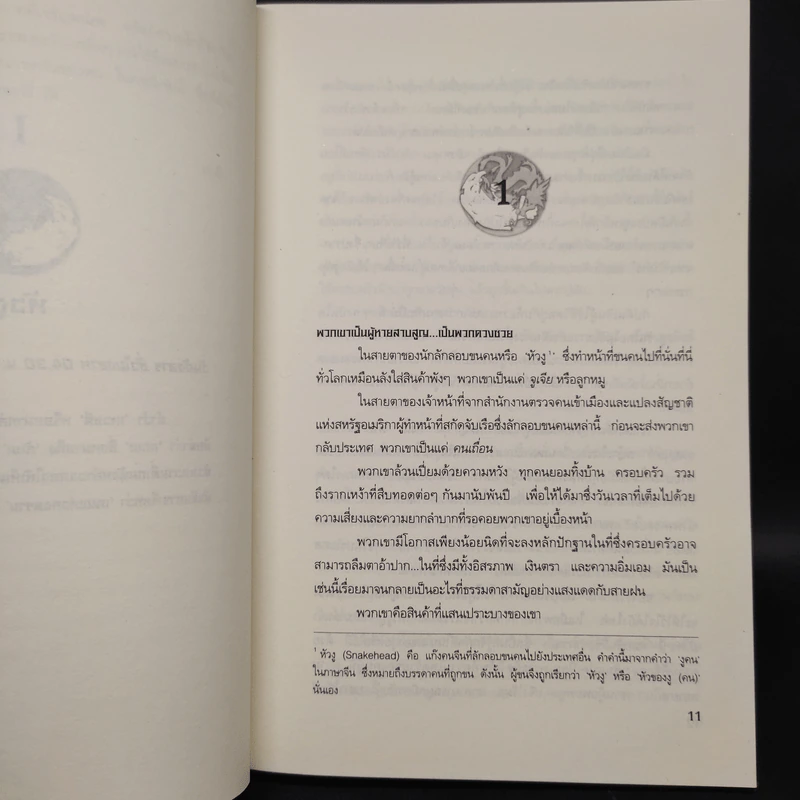 1
พวกเขาเป็นผู้หายสาบสูญ...เป็นพวกดวงซวย
ในสายตาของนักลักลอบขนคนหรือ 'หัวงู¹' ซึ่งทำหน้าที่ขนคนไปที่นั่นที่นี่
ทั่วโลกเหมือนลังใส่สินค้าพังๆ พวกเขาเป็นแค่ จูเจีย หรือลูกหมู
ในสายตาของเจ้าหน้าที่จากสำนักงานตรวจคนเข้าเมืองและแปลงสัญชาติ
แห่งสหรัฐอเมริกาผู้ทำหน้าที่สกัดจับเรือซึ่งลักลอบขนคนเหล่านี้ ก่อนจะส่งพวกเขา
กลับประเทศ พวกเขาเป็นแค่ คนเถื่อน
พวกเขาล้วนเปี่ยมด้วยความหวัง ทุกคนยอมทิ้งบ้าน ครอบครัว รวม
ถึงรากเหง้าที่สืบทอดต่อๆ กันมานับพันปี เพื่อให้ได้มาซึ่งวันเวลาที่เต็มไปด้วย
ความเสี่ยงและความยากลำบากที่รอคอยพวกเขาอยู่เบื้องหน้า
พวกเขามีโอกาสเพียงน้อยนิดที่จะลงหลักปักฐานในที่ซึ่งครอบครัวอาจ
สามารถลืมตาอ้าปาก...ในที่ซึ่งมีทั้งอิสรภาพ เงินตรา และความอิ่มเอม มันเป็น
เช่นนี้เรื่อยมาจนกลายเป็นอะไรที่ธรรมดาสามัญอย่างแสงแดดกับสายฝน
พวกเขาคือสินค้าที่แสนเปราะบางของเขา
¹ หัวงู (Snakehead) คือ แก๊งคนจีนที่ลักลอบขนคนไปยังประเทศอื่น คำคำนี้มาจากคำว่า 'งูคน'
ในภาษาจีน ซึ่งหมายถึงบรรดาคนที่ถูกขน ดังนั้น ผู้ขนจึงถูกเรียกว่า 'หัวงู' หรือ 'หัวของงู (คน)'
นั่นเอง
11